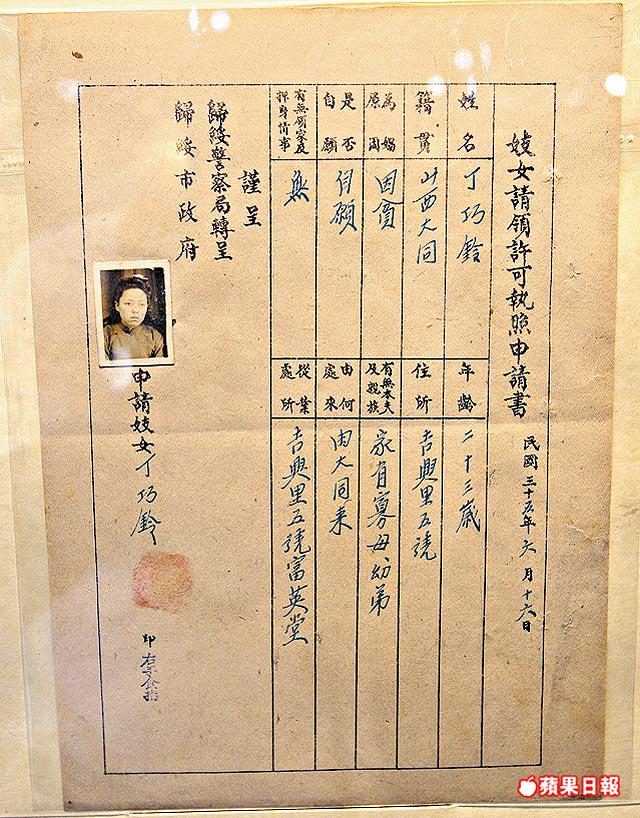 妓女請領許可執照申請書
民國三十五年六月十六日
姓名
丁巧鈴
年齡
二十三歲
籍貫
山西大同
住所
吉興里五號
為娼
原因
因
有無本夫
及親族
家有寡母幼弟
是否
自願
自願
由何
處來
由大同來
有無領家及
押身情事
無
從業
處所
吉興里五號富英堂
謹呈
歸綏警察局轉呈
歸綏市政府
申請妓女丁巧鈴
印
蘋果日報